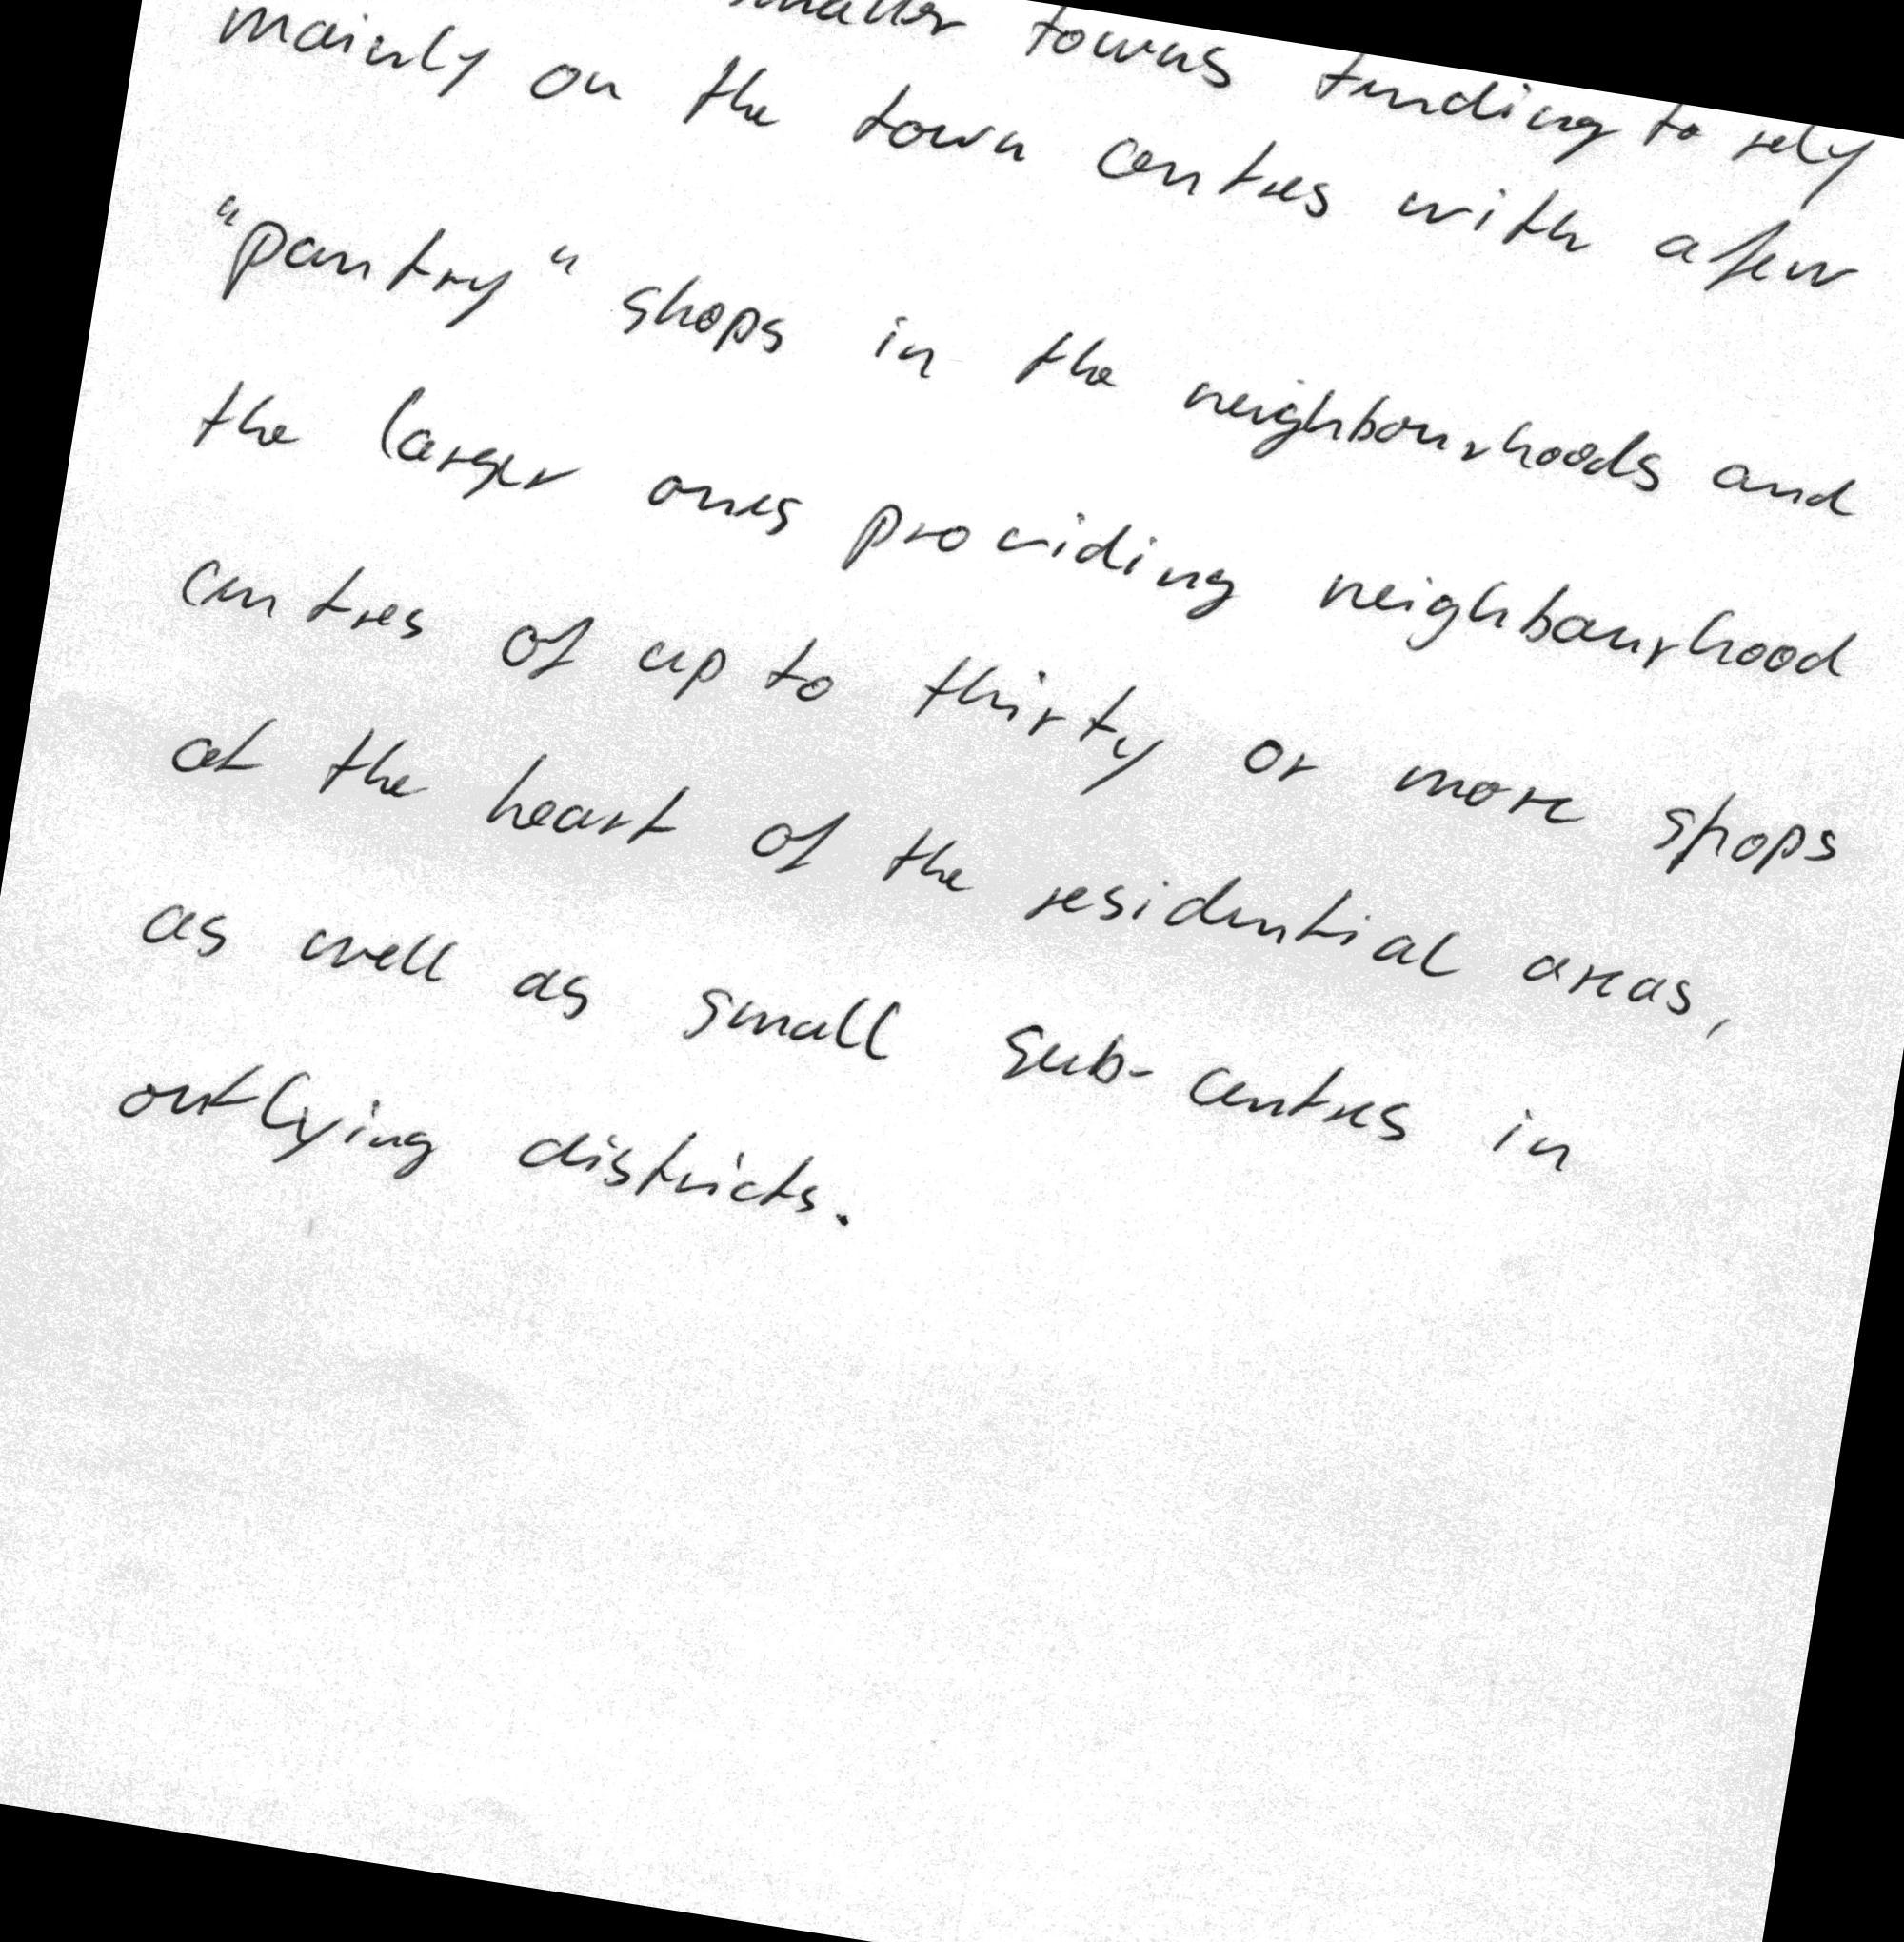 smaller towns tending to rely
mainly on the town centres with a few
"pantry" shops in the neighbourhoods and
the larger ones providing neighbourhood
centres of up to thirty or more shops
at the heart of the residential areas,
as well as small sub-centres in
outlying districts.